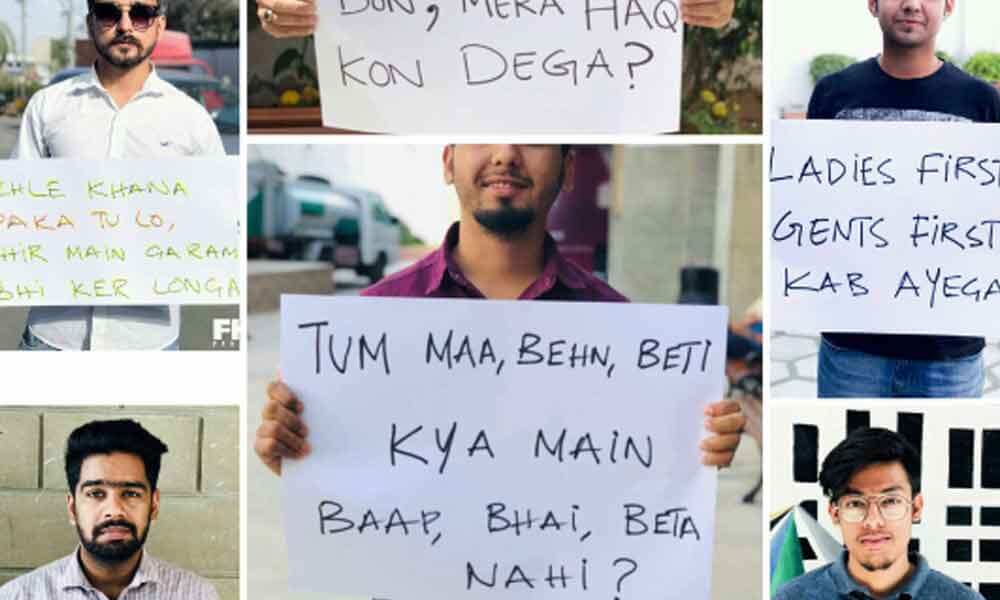 EHLE KHANA
PAKA TU LO,
HIR MAIN GARAM
BHI KER LONGA
MERA HAQ
KON DEGA?
TUM MAA, BEHN, BETI
KYA MAIN
BAAP, BHAI, BETA
NAHI?
LADIES FIRST
GENTS FIRST
KAB AYEGA